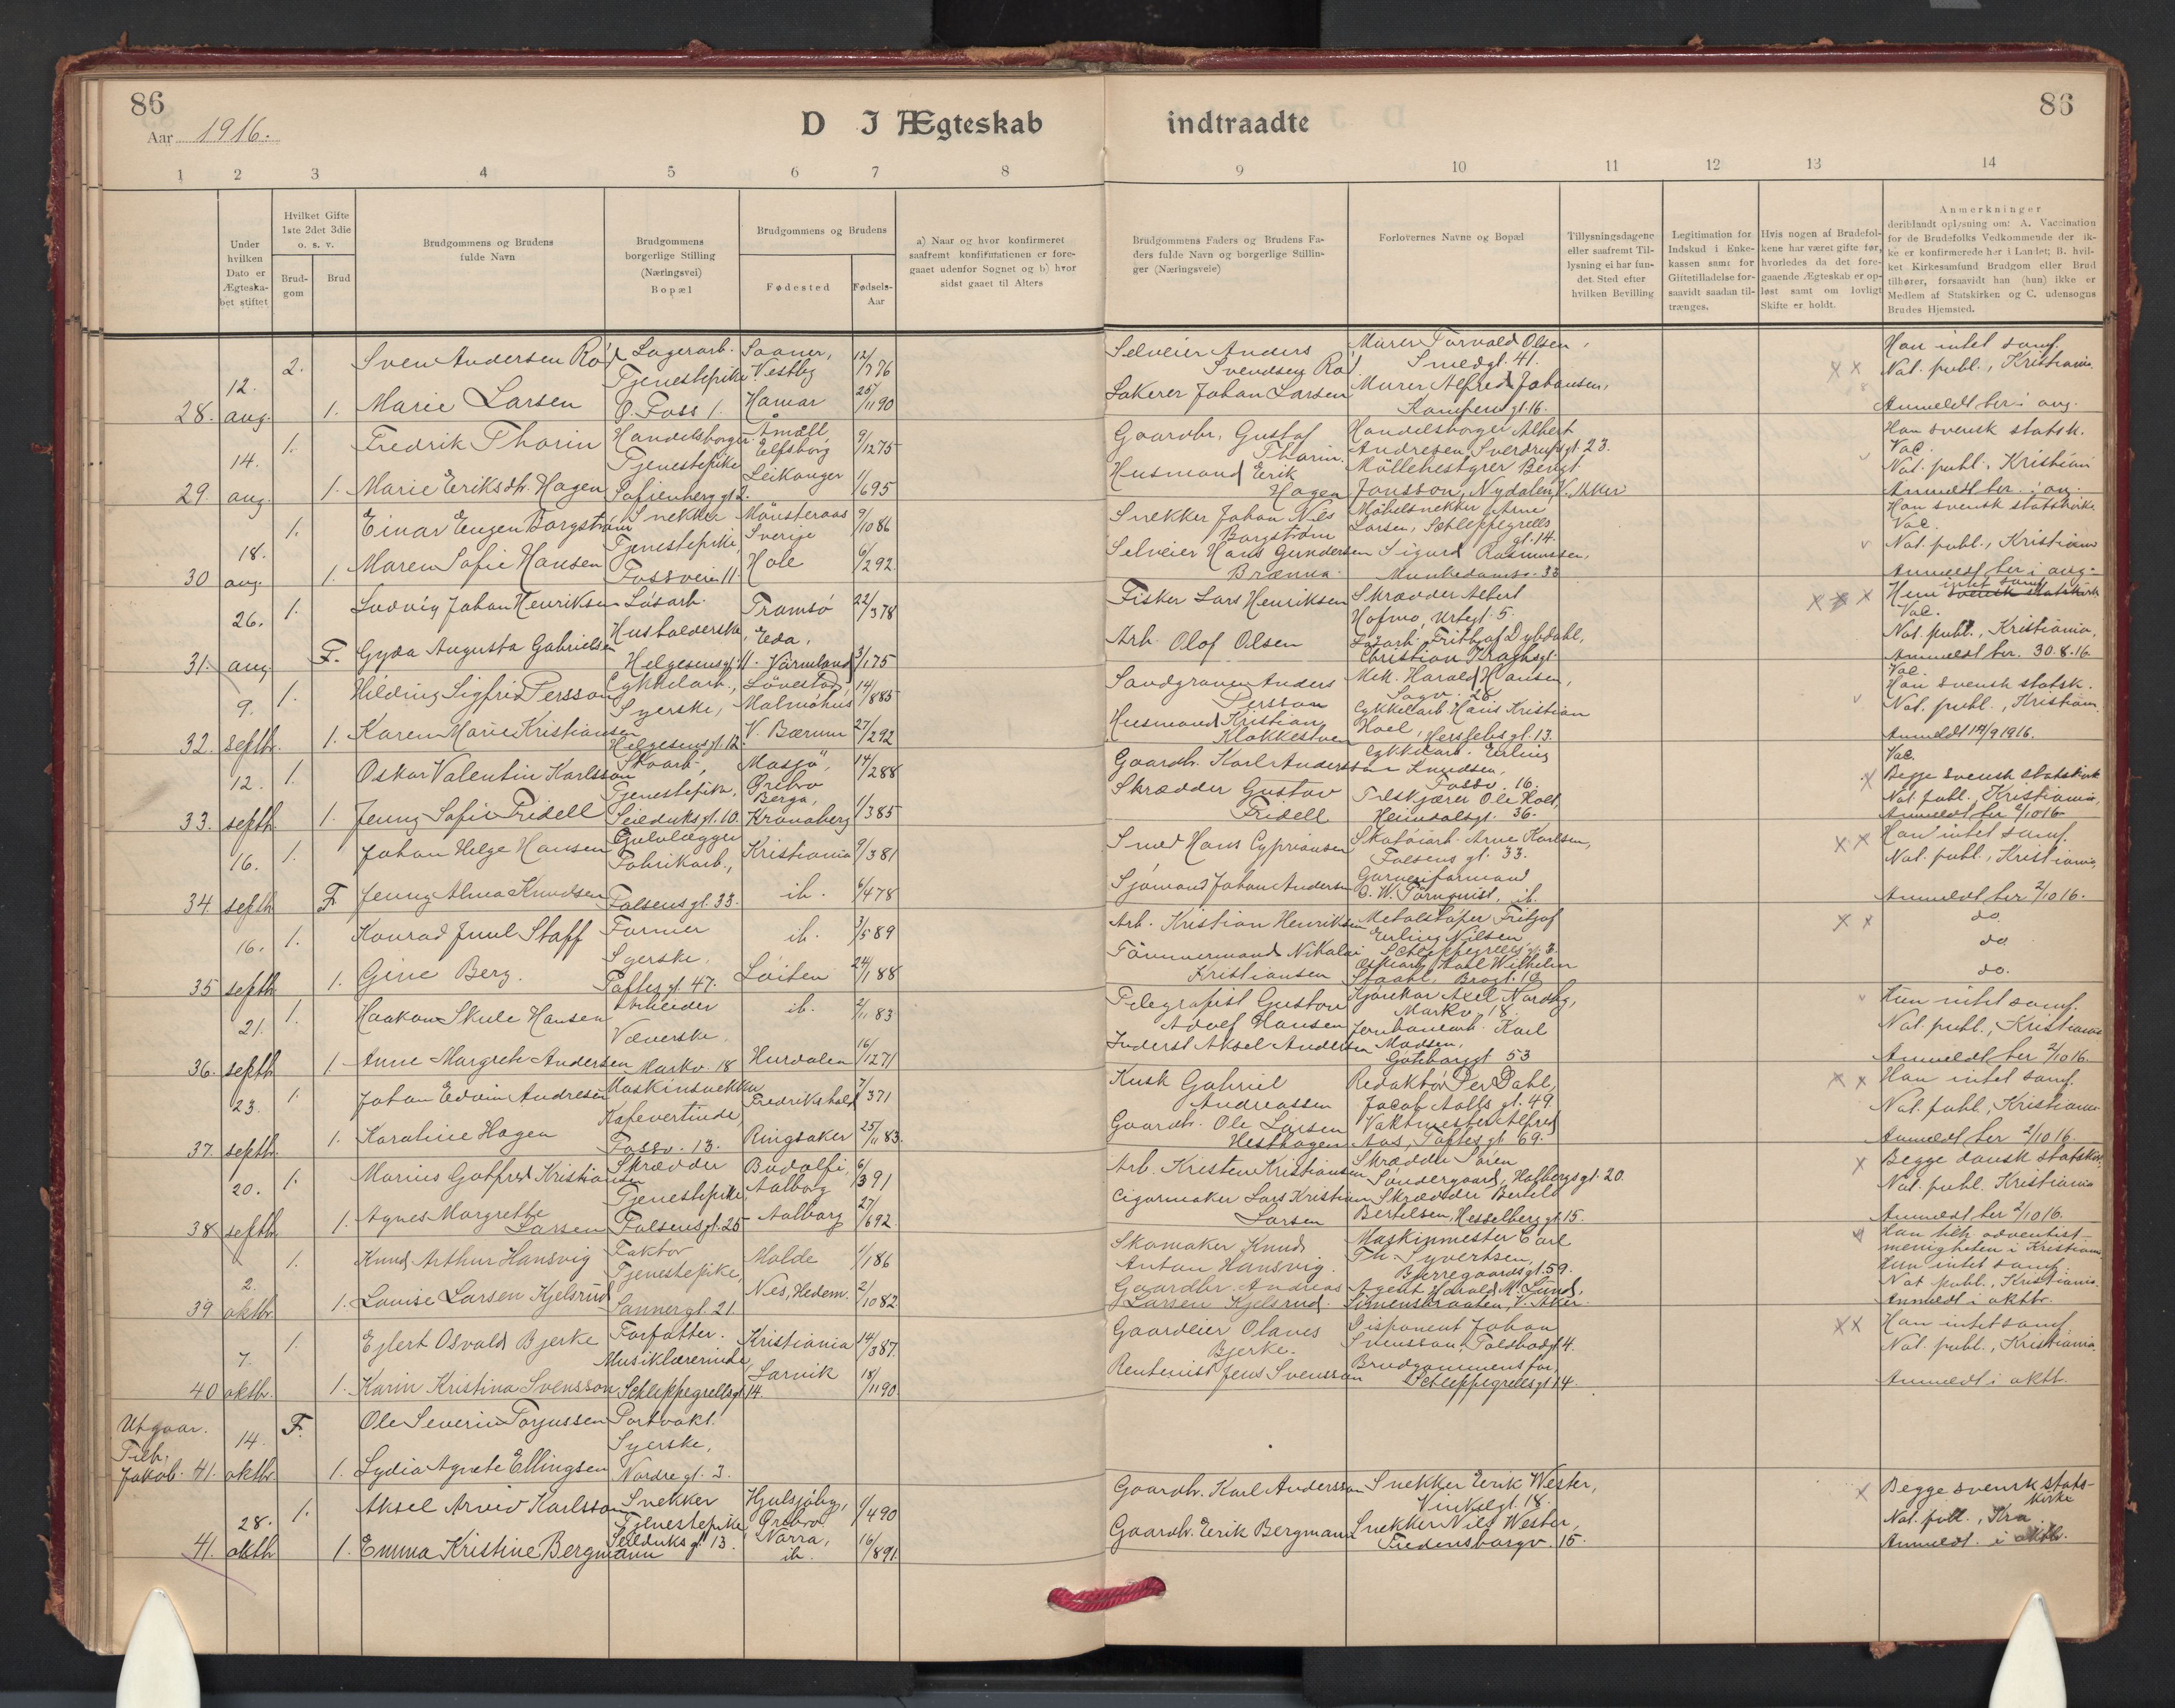 86
Aar 1916.
D I Ægteskab indtraadte
86
1 2 3 4 5 6 7 8 9 10 11 12 13 14
Under hvilken Dato er Ægteskabet stiftet
Hvilket Gifte 1ste 2det 3die o. s. v.
Brudgom
Brud
Brudgommens og Brudens fulde Navn
Brudgommens borgerlige Stilling (Næringsvei) Bopæl
Brudgommens og Brudens
Fødested
Fødsels-Aar
a) Naar og hvor konfirmeret saafremt konfirmationen er foregaaet udenfor Sognet og b) hvor sidst gaaet til Alters
Brudgommens Faders og Brudens Faders fulde Navn og borgerlige Stillinger (Næringsveie)
Forlovernes Navne og Bopæl
Tillysningsdagene eller saafremt Tillysning ei har fundet Sted efter hvilken Bevilling
Legitimation for Indskud i Enkekassen samt for Giftetilladelse forsaavidt saadan tiltrænges.
Hvis nogen af Brudefolkene har været gifte før, hvorledes da det foregaaende Ægteskab er opløst samt om lovligt Skifte er holdt.
Anmerkninger deriblandt oplysning om: A. Vaccination for de Brudefolks Vedkommende der ikke er konfirmerede her i Landet; B. hvilket Kirkesamfund Brudgom eller Brud tilhører, forsaavidt han (hun) ikke er Medlem af Statskirken og C. udensogns Brudes Hjemsted.
28. 12. aug. 2. Sven Andersen Rød Lagerarb. Saaner, Vestby 12/7 76 Selveier Anders Svendsen Rød. Murer Torvald Olsen, Smedgt. 41. Han intet samf. Not. publ., Kristiania
1. Marie Larsen Tjenestepike O. Foss 1. Hamar 25/11 90 Sakerer Johan Larsen Murer Alfred Johansen, Kampengt. 16. Anmeldt her i aug.
29. 14. aug. 1. Fredrik Thorin Handelsborger Åmåll Elfsborg 9/12 75 Gaardbr. Gustaf Thorin. Handelsborger Albert Andresen, Sverdrupsgt. 23. Han svensk statsk. Vac. Not. publ., Kristian
1. Marie Eriksdtr. Hagen Tjenestepike Sofienberggt 2. Leikanger 1/6 95 Husmand Erik Hagen Möllebestyrer Bengt Jonsson, Nydalen, V. Aker Anmeldt her i aug.
30 18. aug. 1. Einar Eugen Borgström Snekker Mönsteraas Sverige 9/10 86 Snekker Johan Nils Borgström Möbelsnekker Arne Larsen, Schleppegrells gt. 14. Han svensk statskirke Vac. Not. publ., Kristiania
1. Maren Sofie Hansen Tjenestepike, Fossveien 11. Hole 6/2 92. Selveier Hans Gundersen Brænna. Sigurd Rasmussen, Munkedamsv. 33 Anmeldt her i aug.
31. 26. aug. 1. Ludvig Johan Henriksen Løsarb. Tromsø 22/3 78 Fisker Lars Henriksen Skrædder Albert Hofmo, Urtegt. 5. Hun intet samf. svensk statskirke Vac. Not. publ., Kristiania,
F. Gyda Augusta Gabrielsen Husholderske, Helgesensgt. 11. Eda, Värmland 3/1 75 Arb. Olof Olsen Løsarb. Frithjof Dybdahl, Christian Kraghsgt. Anmeldt her. 30.8.16
32. 9. septbr. 1. Hilding Sigfrid Persson Cykkelarb., Lövestad, Malmöhus 14/8 85 Sandgraver Anders Persson Mek. Harald Hansen, Sagv. 28 Vac. Han svensk statsk. Not. publ., Kristiania
1. Karen Marie Kristiansen Syerske, Helgesensgt. 12. V. Bærum 27/2 92 Husmand Kristian Klokkestuen Cykkelarb. Hans Kristian Hoel, Herslebsgt. 13. Anmeldt 14/9 1916.
33. 12. septbr 1. Oskar Valentin Karlsson Skoarb., Mosjö, Örebro 14/2 88 Gaardbr. Karl Andersson Cykkelarb. Erling Knudsen, Fossv. 16. Vac. Begge svensk statskirke Not. publ. Kristiania,
1. Jenny Sofie Fridell Tjenestepike, Seilduksgt. 10. Berga, Kronoberg 1/3 85 Skrædder Gustav Fridell Tilskjærer Ole Holt, Heimdalsgt. 36. Anmeldt her 2/10 16
34. 16. septbr 1. Johan Helge Hansen Gulvlægger Kristiania 9/3 81 Smed Hans Cypriansen Skotöiarb. Arne Karlsen, Falsens gt. 33. Han intet samf. Not. publ., Kristiania,
F Jenny Alma Knudsen Fabrikarb., Falsensgt. 33. ib. 6/4 78 Sjömand Johan Andersen O. W. Törnquist, ib. Anmeldt her 2/10 16.
35 16. septbr 1. Konrad Juul Staff Former ib. 3/5 89 Arb. Kristian Henriksen Metalstøper Fritjof Erling Nilsen do.
do.
1. Gine Berg. Syerske. Toftesgt. 47. Løiten 24/1 88 Tømmermand Nikolai Kristiansen Karl Wilhelm Staahl, do.
36. 21. septbr 1. Haakon Skule Hansen Arbeider ib. 2/11 83 Telegrafist Gustav Adolf Hansen Axel Nordby, Markv. 18. Hun intet samf. Not. publ., Kristiania
1 Anne Margrete Andersen Væverske. Markv. 18 Hurdalen 16/12 71 Inderst Aksel Andersen Jernbanearb. Karl Madsen, Göteborggt 53 Anmeldt her 2/10 16.
37. 23. septbr. 1. Johan Edvin Andresen Maskinsnekker Fredrikshald 7/3 71 Kusk Gabriel Andreassen Redaktör Per Dahl, Jacob Aalls gt. 49. Han intet samf. Not. publ., Kristiania
1. Karoline Hagen Kafevertinde, Fossv. 13. Ringsaker 25/11 83. Gaardbr. Ole Larsen Hesthagen Vaktmester Alfred Aas, Toftesgt 69. Anmeldt her 2/10 16.
38 20. septbr. 1. Marius Gotfred Kristiansen Skrædder Budolfi, Aalborg 6/3 91 Arb. Kristen Kristiansen Skrædder Søren Søndergaard, Holbergsgt. 20. Begge dansk statskirke Not. publ. Kristiania
1. Agnes Margrethe Larsen Tjenestepike, Falsensgt. 25 Aalborg 27/6 92. Cigarmaker Lars Kristian Larsen Skrædder Bertel Bertelsen, Hesselberggt. 15. Anmeldt her 2/10 16.
39 2. oktbr. 1. Knud Arthur Hansvig Faktor Molde 1/1 86 Skomaker Knud Anton Hansvig. Maskinmester Carl Th. Syvertsen, Bjerregaardsgt. 59. Han tilh. adventistmenigheten i Kristiania Hun intet samf. Not. publ., Kristiania.
1. Louise Larsen Kjelsrud Tjenestepike, Sannergt. 21. Nes, Hedem. 2/10 82 Gaardbr. Andreas Larsen Kjelsrud. Agent Harald M. Lund, Simensbraaten, V. Aker. Anmeldt i oktbr.
40 7. oktbr. 1. Eylert Osvald Bjerke Forfatter. Kristiania 14/3 87. Gaardeier Olaves Bjerke. Disponent Johan Svensson, Toldbodgt 4. Han intet samf. Not. publ., Kristiania
1. Karin Kristina Svensson Musiklærerinde, Schleppegrellsgt. 14. Larvik 18/11 90. Rentenist Jens Svensson Brudgommens far, Schleppegrellsgt 14. Anmeldt i oktb.
Utgaar. Tilh. Jakob. 41. 14. oktbr. F. Ole Severin Torjussen Portvakt.
1. Lydia Agnete Ellingsen Syerske, Nordregt. 3.
41. 28. oktbr 1. Aksel Arvid Karlsson Snekker Hjulsjöby, Örebro 1/4 90 Gaardbr. Karl Andersson Snekker Erik Wester, Vinkelgt. 18. Begge svensk statskirke Not. publ., Kra.
1. Emma Kristine Bergmann Tjenestepike Seilduksgt. 13. Norra, ib. 16/8 91. Gaardbr. Erik Bergmann Snekker Nils Wester, Fredensborgv. 15. Anmeldt i oktbr.